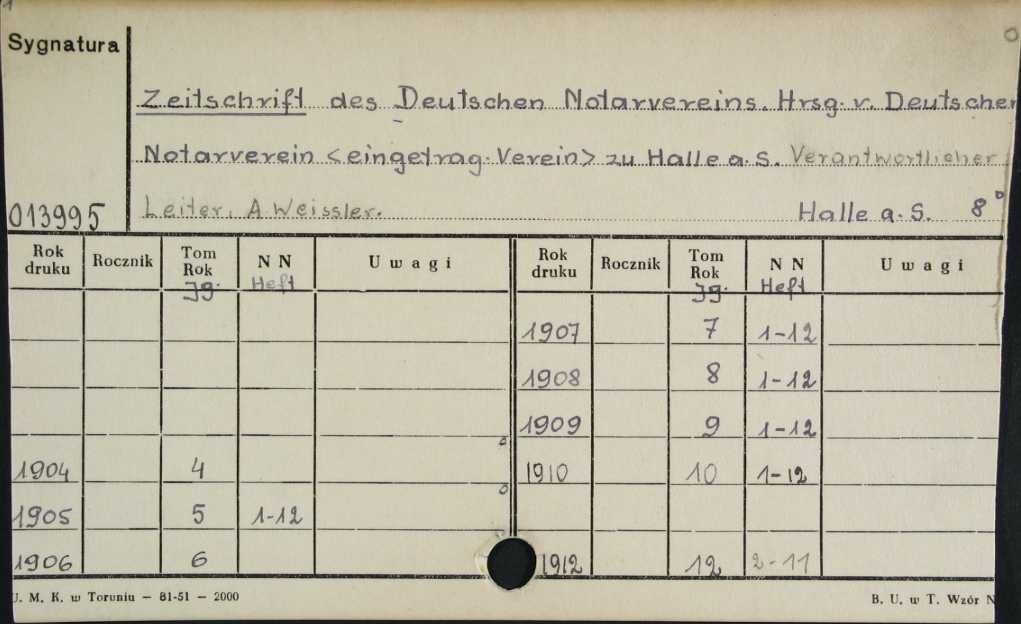 Sygnatura
Zeitschrift des Deutschen Notarvereins. Hrsg. v. Deutschen
Notarverein <eingetrag. Verein> zu Halle a. S. Verantwortlicher
013995 Leiter. A. Weissler. Halle a. S. 8°
Rok druku Rocznik Tom Rok Jg. N N Heft Uwagi Rok druku Rocznik Tom Rok Jg. N N Heft Uwagi
1907 7 1-12
1908 8 1-12
1909 9 1-12
1904 4 1910 10 1-12
1905 5 1-12
1906 6 1912 12 2-11
U. M. K. w Toruniu — 81-51 — 2000 B. U. w T. Wzór N